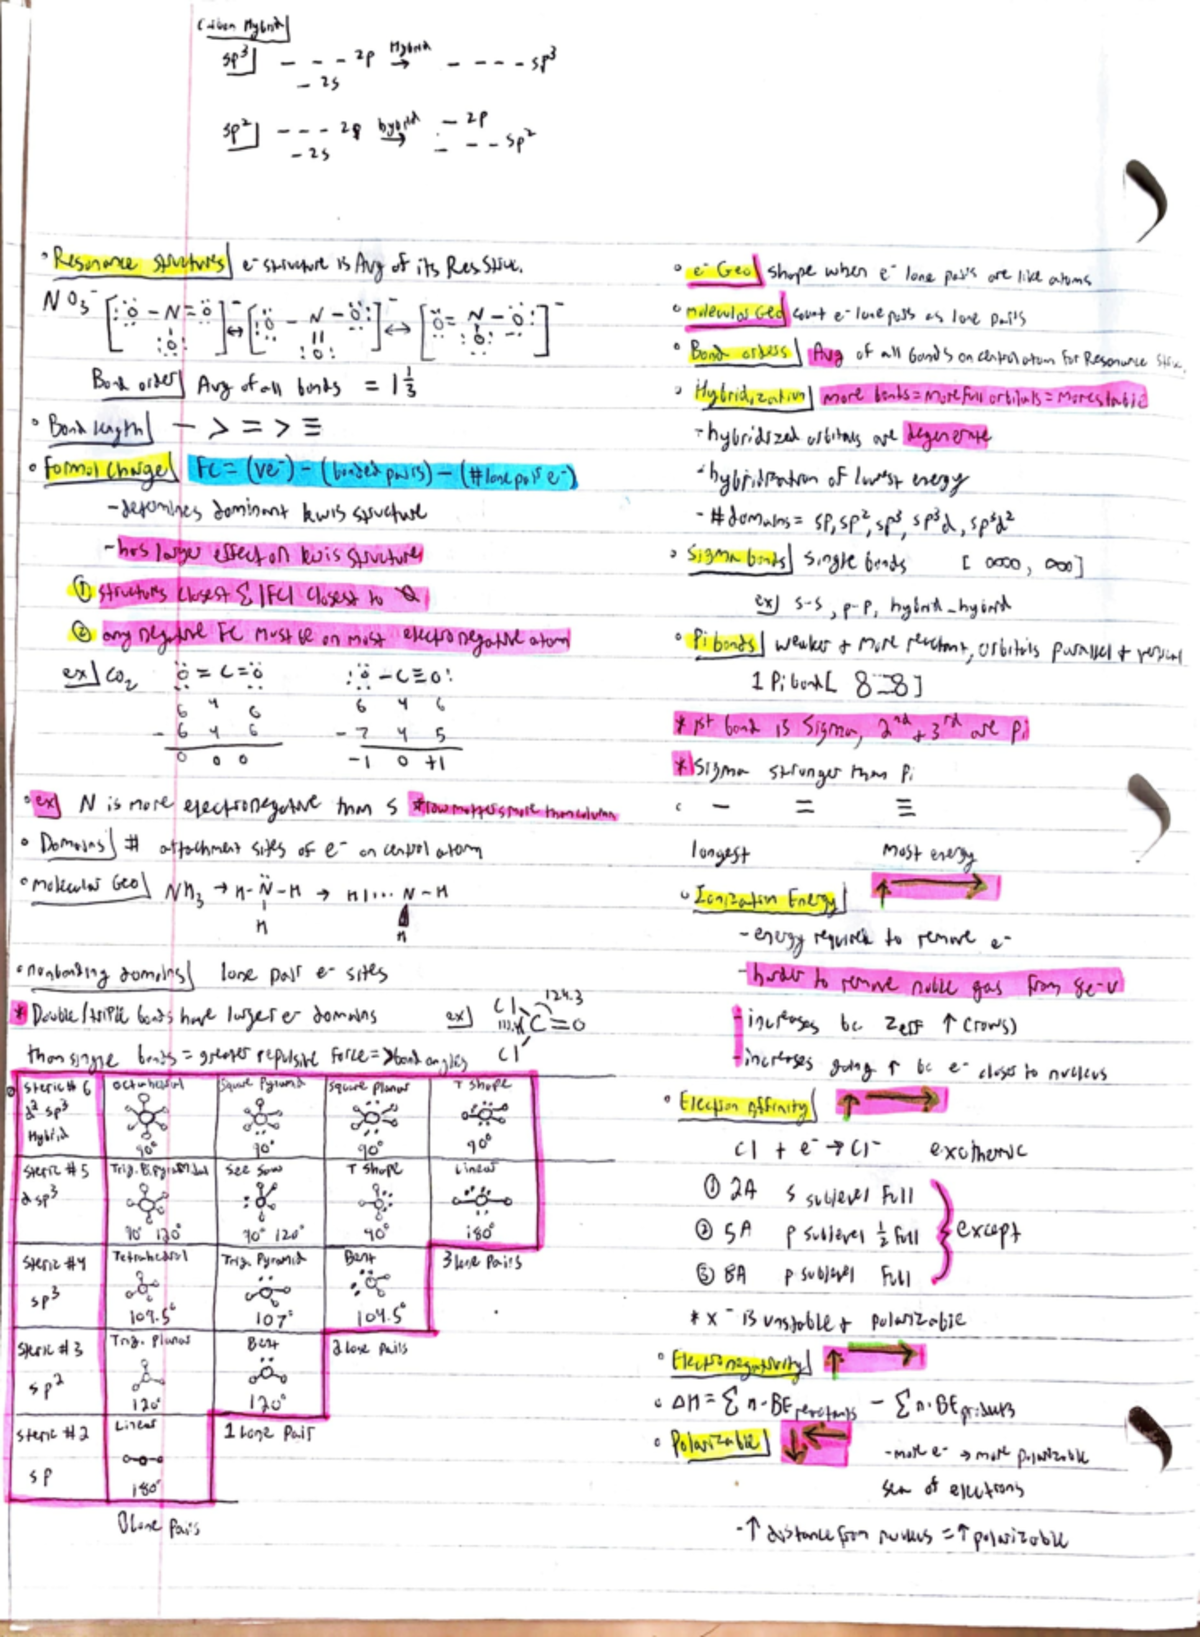 Carbon Hybrid
sp³ _ _ _ 2p Hybrid → _ _ _ _ sp³
_ 2s
sp² _ _ _ 2p hybrid → _ 2p
_ 2s _ _ _ sp²
° Resonance structures e⁻ structure is Avg of its Res Struc.
NO₃⁻ [:Ö - N = Ö]⁻ ↔ [:Ö - N - Ö:]⁻ ↔ [Ö = N - Ö:]⁻
:O: :O: :O:
Bond order Avg of all bonds = 1 1/3
° Bond length — > = > ≡
° Formal Charge FC = (ve⁻) - (bonded pairs) - (# lone pair e⁻)
- determines dominant lewis structure
- has larger effect on lewis structure
① structures closest Σ|FC| closest to 0
② any negative FC must be on most electronegative atom
ex) CO₂ Ö = C = Ö :Ö - C ≡ O:
6 4 6 6 4 6
- 6 4 6 - 7 4 5
0 0 0 -1 0 +1
° ex) N is more electronegative than S *row matters more than column
° Domains # attachment sites of e⁻ on central atom
° Molecular Geo NH₃ → H-N̈-H → H|··· N - H
H H
° nonbonding domains lone pair e⁻ sites
* Double/triple bonds have larger e⁻ domains ex) Cl 124.3
C=O
than single bonds = greater repulsive force = > bond angles Cl
Steric # 6 Octahedral Square Pyramid Square planar T shape
d² sp³
Hybrid
90° 90° 90° 90°
Steric # 5 Trig. Bipyramidal See Saw T shape Linear
dsp³
90° 120° 90° 120° 90° 180°
Steric # 4 Tetrahedral Trig. Pyramid Bent 3 lone Pairs
sp³
109.5° 107° 104.5°
Steric # 3 Trig. Planar Bent 2 lone pairs
sp²
120° 120°
Steric # 2 Linear 1 Lone Pair
sp
180°
0 lone Pairs
° e⁻ Geo shape when e⁻ lone pairs are like atoms
° Molecular Geo count e⁻ lone pairs as lone pairs
° Bond orders Avg of all bonds on central atom for Resonance Struc.
° Hybridization more bonds = more full orbitals = more stable
- hybridized orbitals are degenerate
- hybridization of lowest energy
- # domains = sp, sp², sp³, sp³d, sp³d²
° Sigma bonds single bonds
ex) s-s, p-p, hybrid-hybrid
° Pi bonds weaker + more reactant, orbitals parallel + vertical
1 Pi bond [ 8=8 ]
* 1st bond is sigma, 2nd + 3rd are pi
* Sigma stronger than Pi
° — = ≡
longest most energy
° Ionization Energy ↑ →
- energy required to remove e⁻
- harder to remove noble gas from
- increases bc Zeff ↑ (rows)
- increases going ↑ bc e⁻ closer to nucleus
° Electron Affinity ↑ →
Cl + e⁻ → Cl⁻ exothermic
① 2A s sublevel Full
② 5A p sublevel ½ full } except
③ 8A p sublevel Full
* x⁻ is unstable + polarizable
° Electronegativity ↑ →
° ΔH = Σ n·BE reactants - Σ n·BE products
° Polarizable ↓ ← - more e⁻ → more polarizable
sea of electrons
- ↑ distance from nucleus = ↑ polarizable